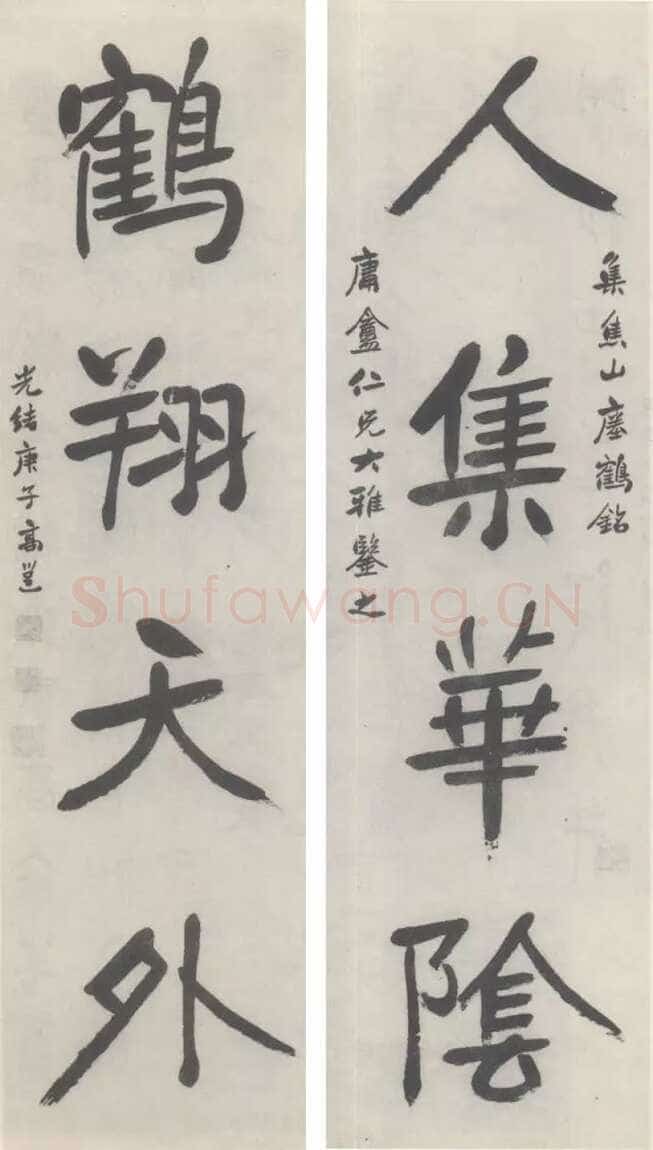 人集華陰
集焦山瘞鶴銘
庸盦仁兄大雅鑒之
鶴翔天外
光緒庚子高邕
Shufawang.CN